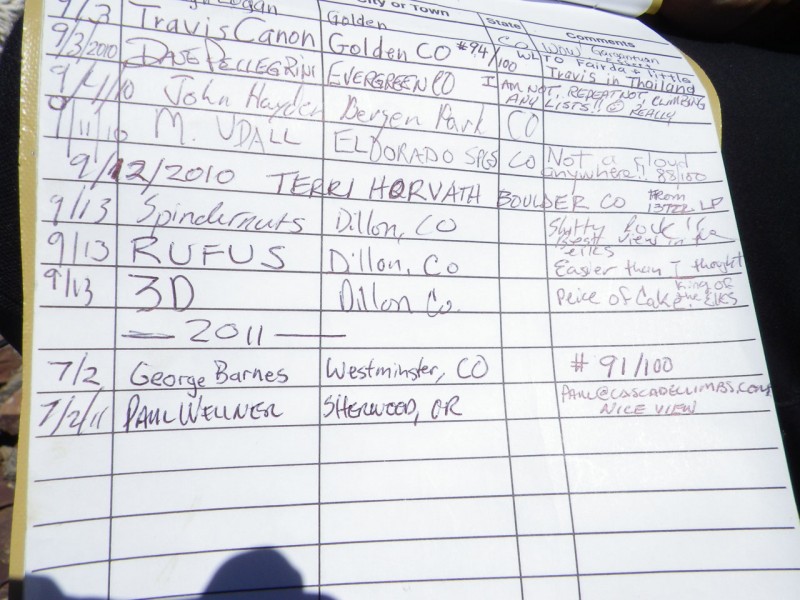 City or Town State Comments
9/3 Logan Golden
Travis Canon Golden CO #94/100 WOW Gargantuan
9/3/2010 DAVE PELLEGRINI EVERGREEN CO I AM NOT, REPEAT NOT, CLIMBING ANY LISTS!! REALLY
To Fairda + little
Travis in Thailand
9/4/10 John Hayden Bergen Park CO
9/11/10 M. UDALL ELDORADO SPGS CO Not a cloud
anywhere!! 88/100
9/12/2010 TERRI HORVATH BOULDER CO From
9/13 Spindernuts Dillon, CO
best view in
elks
9/13 RUFUS Dillon, Co Easier than I thought
9/13 3D Dillon Co. Peice of Cake King of
the ELKS
— 2011 —
7/2 George Barnes Westminster, CO # 91/100
7/2/11 PAUL WELLNER SHERWOOD, OR PAUL@CASCADECLIMBS.COM
NICE VIEW